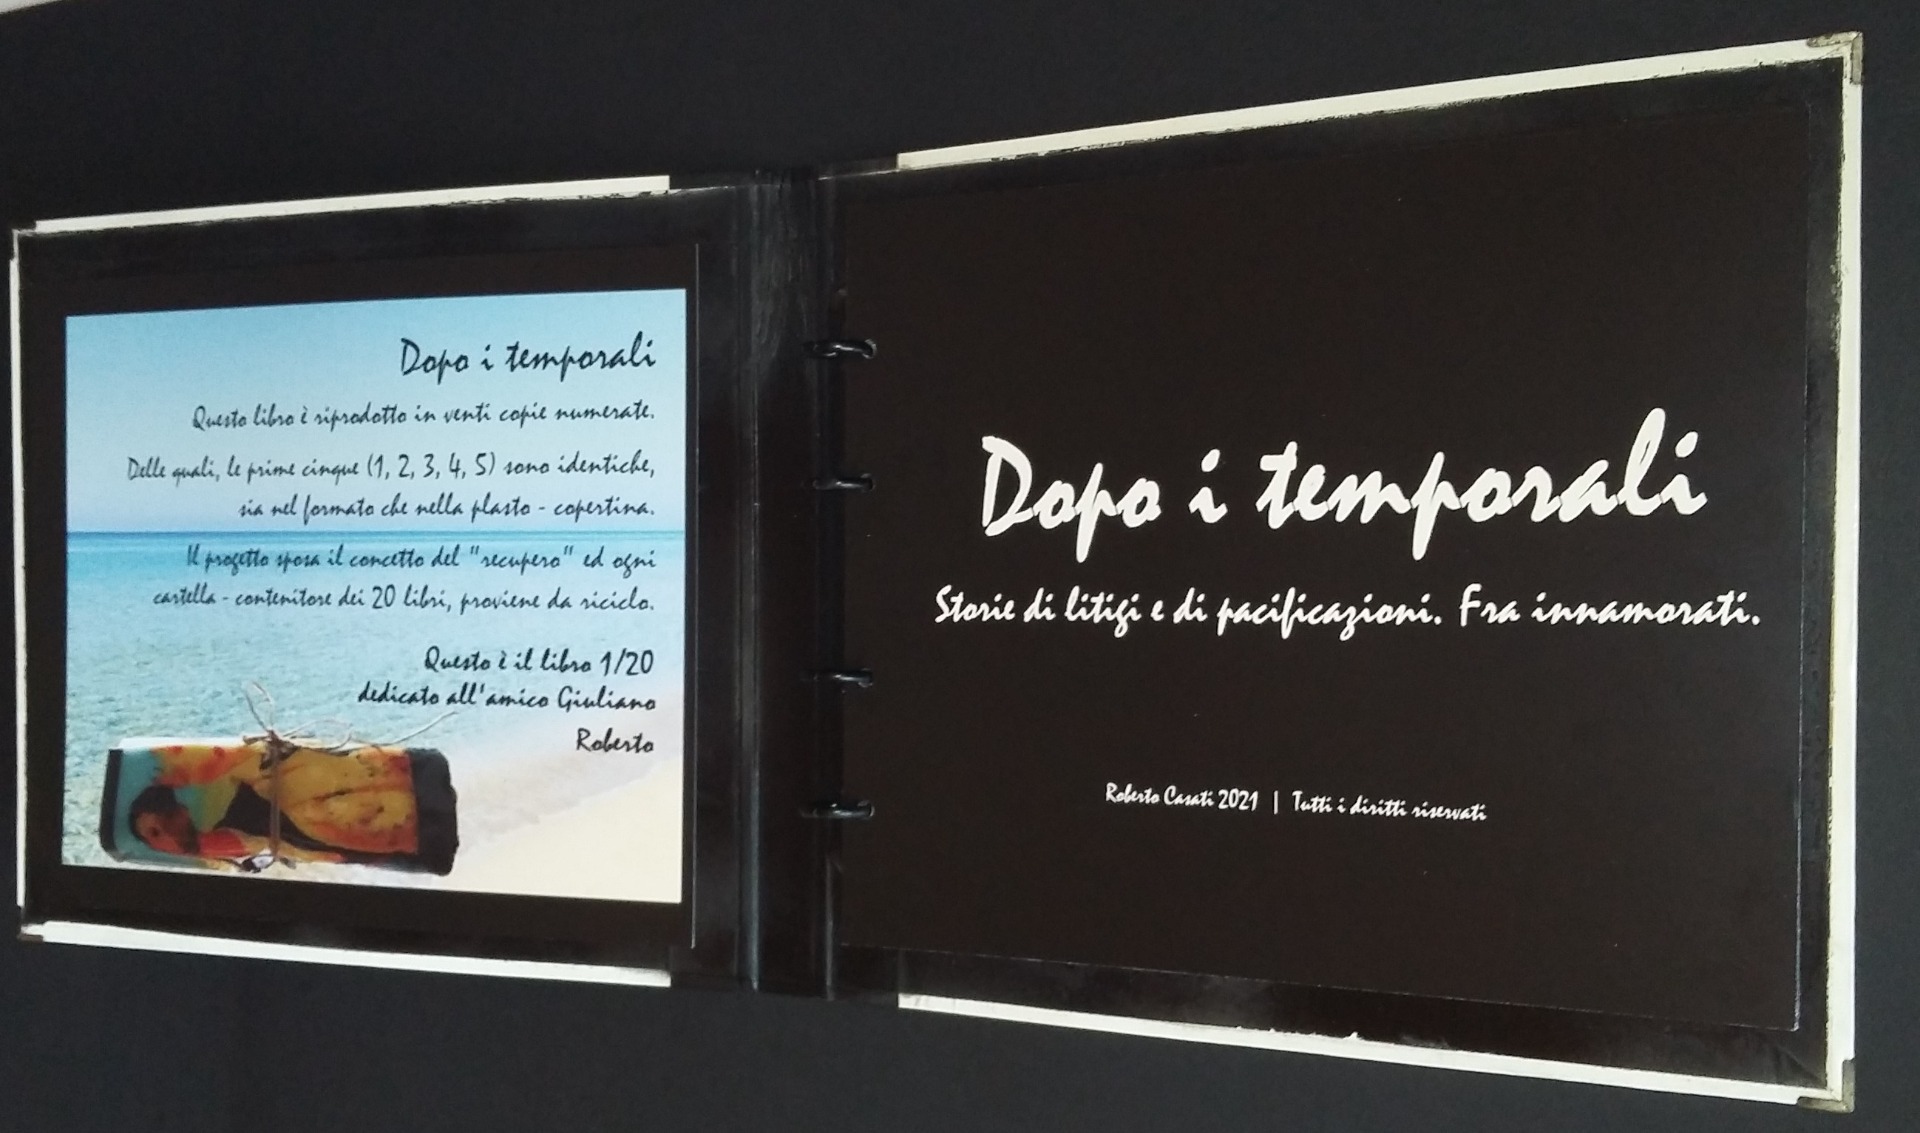 Dopo i temporali
Questo libro è riprodotto in venti copie numerate.
Delle quali, le prime cinque (1, 2, 3, 4, 5) sono identiche,
sia nel formato che nella plasto - copertina.
Il progetto sposa il concetto del "recupero" ed ogni
cartella - contenitore dei 20 libri, proviene da riciclo.
Questo è il libro 1/20
dedicato all'amico Giuliano
Roberto
Dopo i temporali
Storie di litigi e di pacificazioni. Fra innamorati.
Roberto Casati 2021 | Tutti i diritti riservati